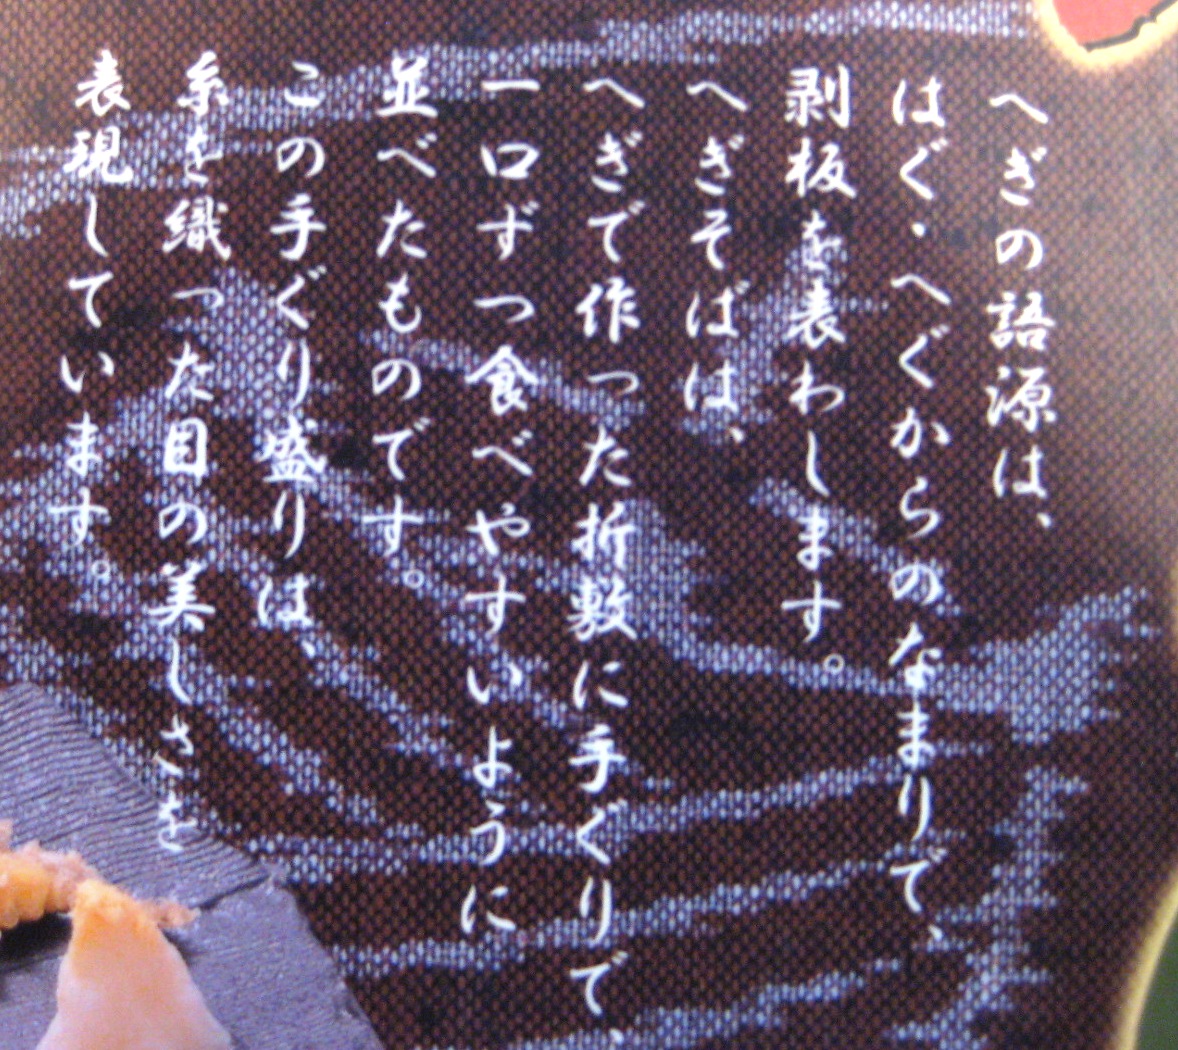 へぎの語源は、
はぐ・へぐからのなまりで、
剥板を表わします。
へぎそばは、
へぎで作った折敷に手ぐりで、
一口ずつ食べやすいように
並べたものです。
この手ぐり盛りは、
糸を織った目の美しさを
表現しています。